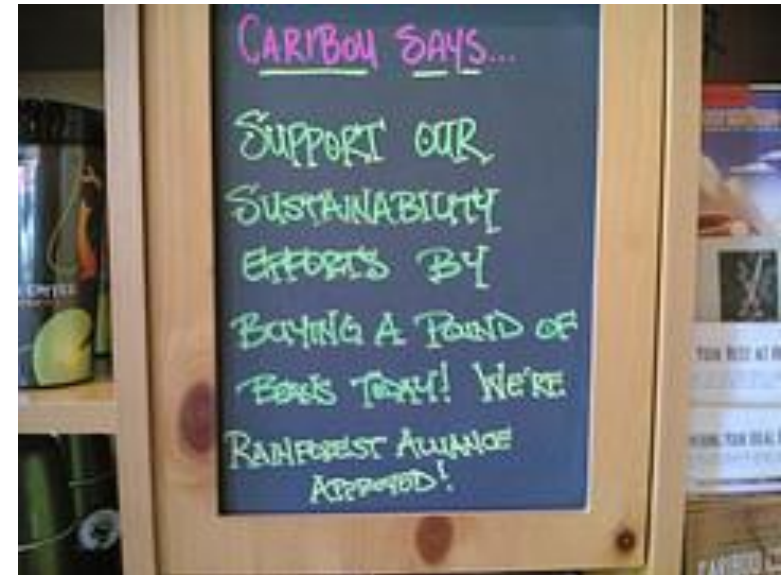 CARIBOU SAYS...
SUPPORT OUR
SUSTAINABILITY
EFFORTS BY
BUYING A POUND OF
BEANS TODAY! WE'RE
RAINFOREST ALLIANCE
APPROVED!
CARIBOU